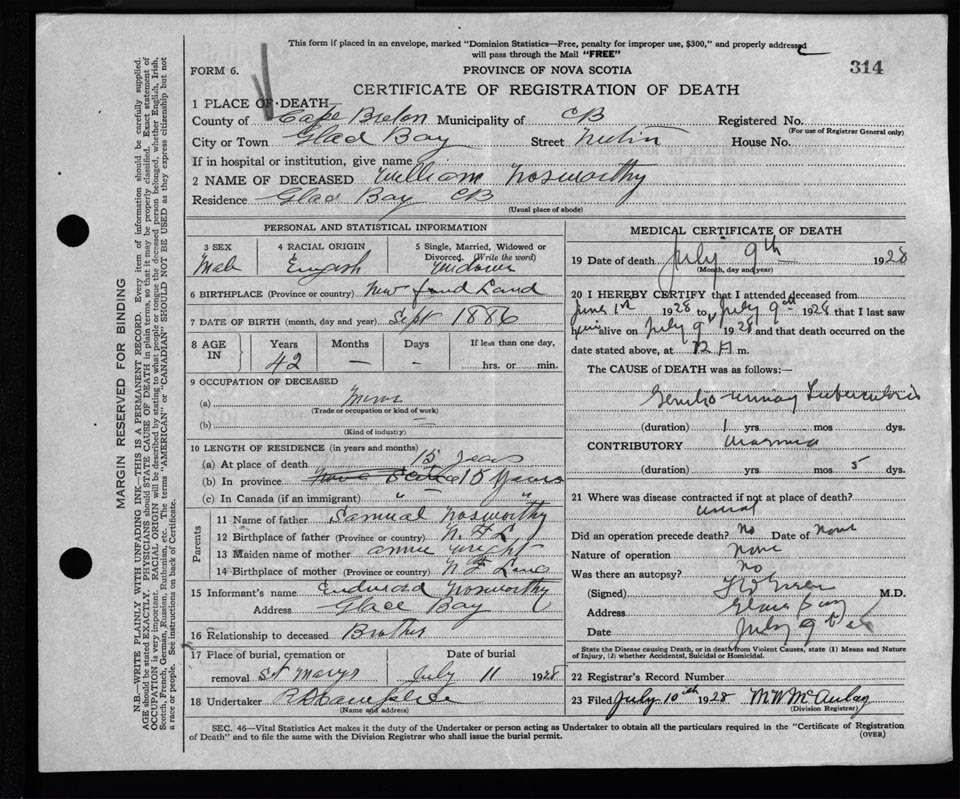 This form if placed in an envelope, marked "Dominion Statistics—Free, penalty for improper use, $300," and properly addressed
will pass through the Mail "FREE"
FORM 6.
PROVINCE OF NOVA SCOTIA
314
CERTIFICATE OF REGISTRATION OF DEATH
1 PLACE OF DEATH—
County of Cape Breton Municipality of CB Registered No.
(For use of Registrar General only)
City or Town Glad Bay Street House No.
If in hospital or institution, give name
2 NAME OF DECEASED William Nosworthy
Residence Glad Bay CB
(Usual place of abode)
PERSONAL AND STATISTICAL INFORMATION
3 SEX 4 RACIAL ORIGIN 5 Single, Married, Widowed or
Divorced. (Write the word)
Male English Widower
6 BIRTHPLACE (Province or country) New found Land
7 DATE OF BIRTH (month, day and year) Sept 1886
8 AGE IN Years Months Days If less than one day,
42 — — hrs. or min.
9 OCCUPATION OF DECEASED
(a) Miner
(Trade or occupation or kind of work)
(b) —
(Kind of industry)
10 LENGTH OF RESIDENCE (in years and months)
(a) At place of death 15 years
(b) In province Nova Scotia 15 Years
(c) In Canada (if an immigrant) " "
Parents
11 Name of father Samual Nosworthy
12 Birthplace of father (Province or country) N. F. L.
13 Maiden name of mother annie wright
14 Birthplace of mother (Province or country) N F Land
15 Informant's name Nosworthy
Address Glace Bay
16 Relationship to deceased Brother
17 Place of burial, cremation or Date of burial
removal St Marys July 11 1928
18 Undertaker
(Name and address)
MEDICAL CERTIFICATE OF DEATH
19 Date of death July 9th 1928
(Month, day and year)
20 I HEREBY CERTIFY that I attended deceased from
June 1st 1928 to July 9th 1928 that I last saw
him alive on July 9 1928 and that death occurred on the
date stated above, at 12 A m.
The CAUSE of DEATH was as follows:—
Genito-urinary Tuberculosis
(duration) 1 yrs mos dys.
CONTRIBUTORY
(duration) yrs mos 5 dys.
21 Where was disease contracted if not at place of death?
Did an operation precede death? No Date of None
Nature of operation None
Was there an autopsy? No
(Signed) M.D.
Address Glace Bay
Date July 9
State the Disease causing Death, or in death from Violent Causes, state (1) Means and Nature
of Injury, (2) whether Accidental, Suicidal or Homicidal.
22 Registrar's Record Number
23 Filed July 10th 1928 M W McAulay
(Division Registrar)
SEC. 46—Vital Statistics Act makes it the duty of the Undertaker or person acting as Undertaker to obtain all the particulars required in the "Certificate of Registration
of Death" and to file the same with the Division Registrar who shall issue the burial permit.
(OVER)
MARGIN RESERVED FOR BINDING
N.B.—WRITE PLAINLY WITH UNFADING INK—THIS IS A PERMANENT RECORD. Every item of information should be carefully supplied.
AGE should be stated EXACTLY. PHYSICIANS should STATE CAUSE OF DEATH in plain terms, so that it may be properly classified. Exact statement of
OCCUPATION is very important. RACIAL ORIGIN will be described by stating to what people or tongue the deceased person belonged, whether English, Irish,
Scotch, French, German, Russian, Ruthenian, etc. The terms "AMERICAN" or "CANADIAN" SHOULD NOT BE USED as they express citizenship but not
a race or people. See instructions on back of Certificate.